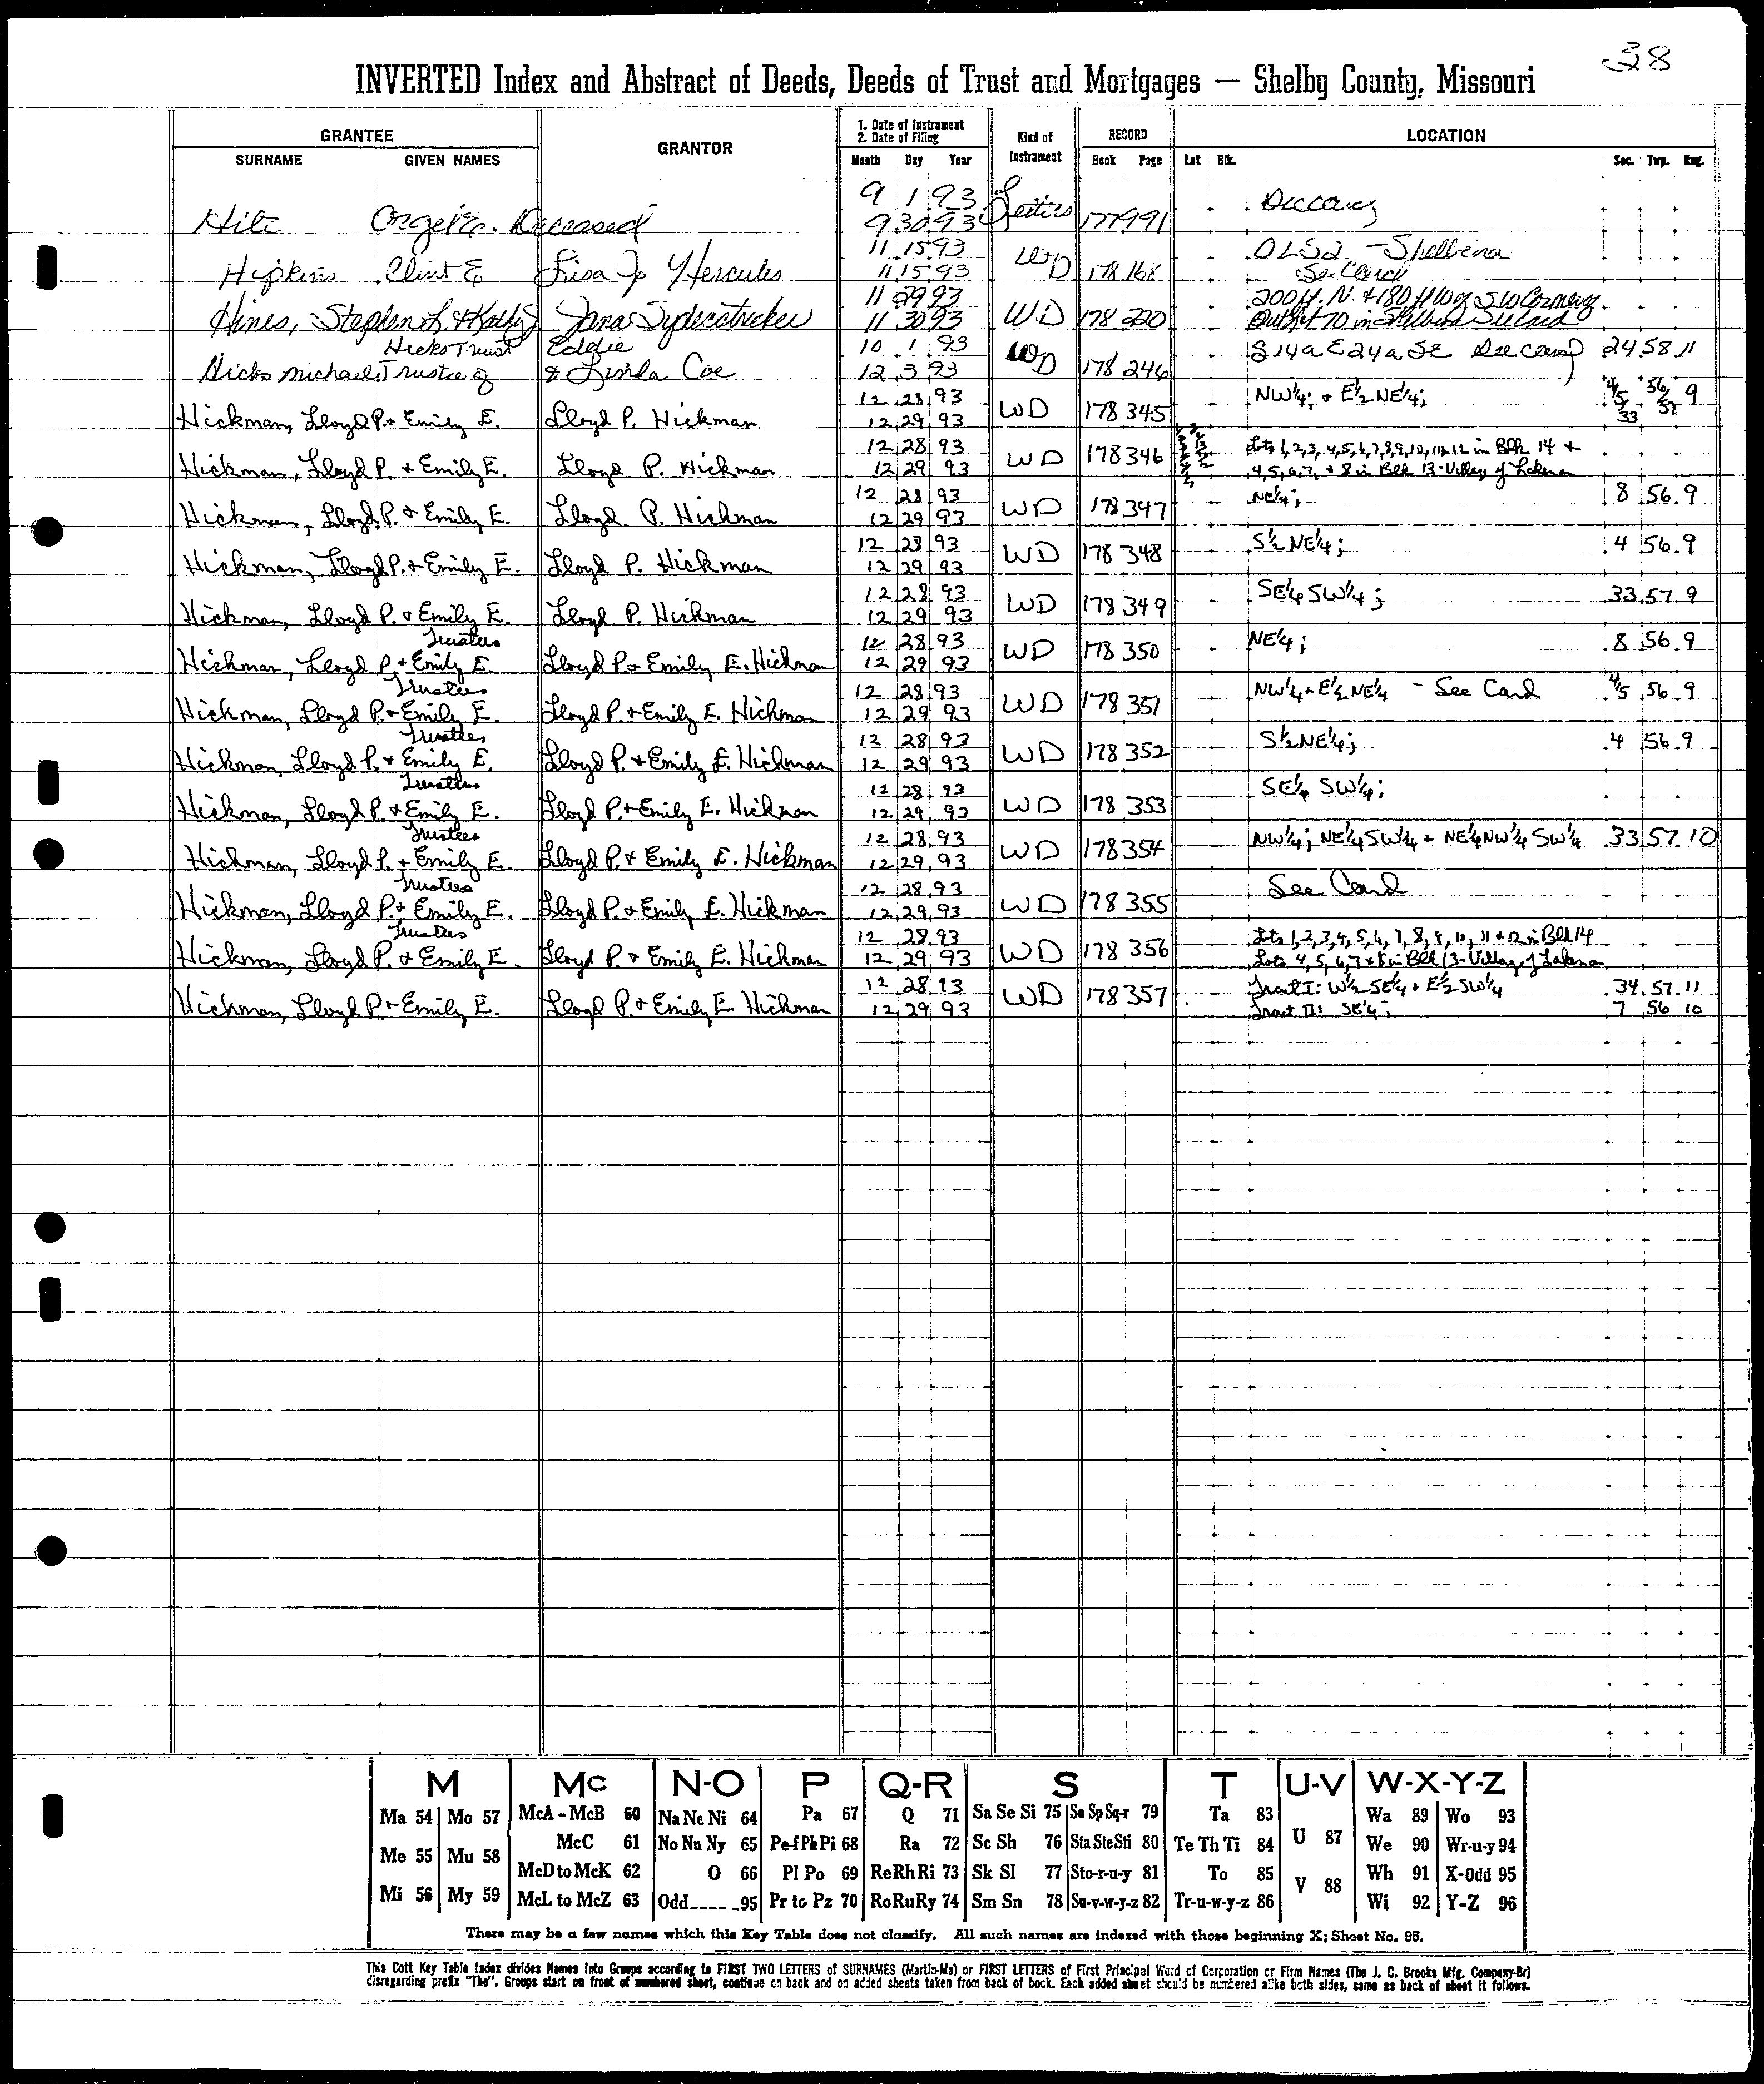 38
INVERTED Index and Abstract of Deeds, Deeds of Trust and Mortgages — Shelby County, Missouri
GRANTEE
SURNAME GIVEN NAMES
GRANTOR
1. Date of Instrument
2. Date of Filing
Month Day Year
Kind of
Instrument
RECORD
Book Page
LOCATION
Lot Blk. Sec. Twp. Rng.
9 1 93 Letters
Deceased 9 30 93 177 991
11 15 93 WD OLS2 - Shelbina
Clint E Lisa Jo Hercules 11 15 93 178 168 See Card
11 29 93 WD 200 ft. N. + 180 ft W of SW Corner of
Hines, Stephen L. & Kathy Sydenstricker 11 30 93 178 220 Outlot 70 in Shelbina See Card
Hicks Trust Eddie 10 1 93 WD S 14a E 24a SE See Card 24 58 11
Hicks Michael Trustee of & Linda Coe 12 3 93 178 246
12 28 93 NW¼; + E½ NE¼; 4/5 33 56/57 9
Hickman, Lloyd P. + Emily E. Lloyd P. Hickman 12 29 93 WD 178 345
12 28 93 Lots 1,2,3,4,5,6,7,8,9,10,11+12 in Blk 14 +
Hickman, Lloyd P. + Emily E. Lloyd P. Hickman 12 29 93 WD 178 346 4,5,6,7, + 8 in Blk 13 - Village of Lakenan
12 28 93 NE¼; 8 56 9
Hickman, Lloyd P. + Emily E. Lloyd P. Hickman 12 29 93 WD 178 347
12 28 93 S½ NE¼; 4 56 9
Hickman, Lloyd P. + Emily E. Lloyd P. Hickman 12 29 93 WD 178 348
12 28 93 SE¼ SW¼; 33 57 9
Hickman, Lloyd P. + Emily E. Lloyd P. Hickman 12 29 93 WD 178 349
Trustees 12 28 93 NE¼; 8 56 9
Hickman, Lloyd P + Emily E. Lloyd P + Emily E. Hickman 12 29 93 WD 178 350
Trustees 12 28 93 NW¼ + E½ NE¼ - See Card 4/5 56 9
Hickman, Lloyd P. + Emily E. Lloyd P. + Emily E. Hickman 12 29 93 WD 178 351
Trustees 12 28 93 S½ NE¼; 4 56 9
Hickman, Lloyd P. + Emily E. Lloyd P. + Emily E. Hickman 12 29 93 WD 178 352
Trustees 12 28 93 SE¼ SW¼;
Hickman, Lloyd P. + Emily E. Lloyd P. + Emily E. Hickman 12 29 93 WD 178 353
Trustees 12 28 93 NW¼; NE¼ SW¼ + NE¼ NW¼ SW¼ 33 57 10
Hickman, Lloyd P. + Emily E. Lloyd P. + Emily E. Hickman 12 29 93 WD 178 354
Trustees 12 28 93 See Card
Hickman, Lloyd P. + Emily E. Lloyd P. + Emily E. Hickman 12 29 93 WD 178 355
Trustees 12 28 93 Lots 1,2,3,4,5,6,7,8,9,10,11 + 12 in Blk 14
Hickman, Lloyd P. + Emily E. Lloyd P. + Emily E. Hickman 12 29 93 WD 178 356 Lots 4,5,6,7 + 8 in Blk 13 - Village of Lakenan
12 28 93 Tract I: W½ SE¼ + E½ SW¼ 34 57 11
Hickman, Lloyd P. + Emily E. Lloyd P. + Emily E. Hickman 12 29 93 WD 178 357 Tract II: SE¼; 7 56 10
M Mc N-O P Q-R S T U-V W-X-Y-Z
Ma 54 Mo 57 McA - McB 60 Na Ne Ni 64 Pa 67 Q 71 Sa Se Si 75 So Sp Sq-r 79 Ta 83 U 87 Wa 89 Wo 93
Me 55 Mu 58 McC 61 No Nu Ny 65 Pe-f Ph Pi 68 Ra 72 Sc Sh 76 Sta Ste Sti 80 Te Th Ti 84 We 90 Wr-u-y 94
McD to McK 62 O 66 Pl Po 69 Re Rh Ri 73 Sk Sl 77 Sto-r-u-y 81 To 85 V 88 Wh 91 X-Odd 95
Mi 56 My 59 McL to McZ 63 Odd____95 Pr to Pz 70 Ro Ru Ry 74 Sm Sn 78 Su-v-w-y-z 82 Tr-u-w-y-z 86 Wi 92 Y-Z 96
There may be a few names which this Key Table does not classify. All such names are indexed with those beginning X; Sheet No. 95.
This Cott Key Table Index divides Names Into Groups according to FIRST TWO LETTERS of SURNAMES (Martin-Ma) or FIRST LETTERS of First Principal Word of Corporation or Firm Names (The J. C. Brooks Mfg. Company-Br)
disregarding prefix "The". Groups start on front of numbered sheet, continue on back and on added sheets taken from back of book. Each added sheet should be numbered alike both sides, same as back of sheet it follows.